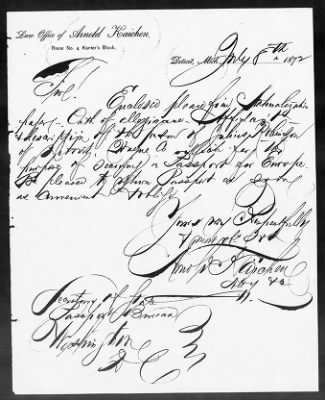 Law Office of Arnold Kaichen,
Room No. 4 Kanter's Block,
Detroit, Mich. July 8th 1872
Enclosed please find Naturalization
paper - Oath of allegiance -
description of the person of
of Detroit, Wayne Co for the
purpose of securing a Passport for Europe
Be pleased to return Passport as soon
as convenient & oblige
Yours very Respectfully
Your ob't
Arnold Kaichen
Atty &c
Secretary of State
Passport Bureau
Washington
D C